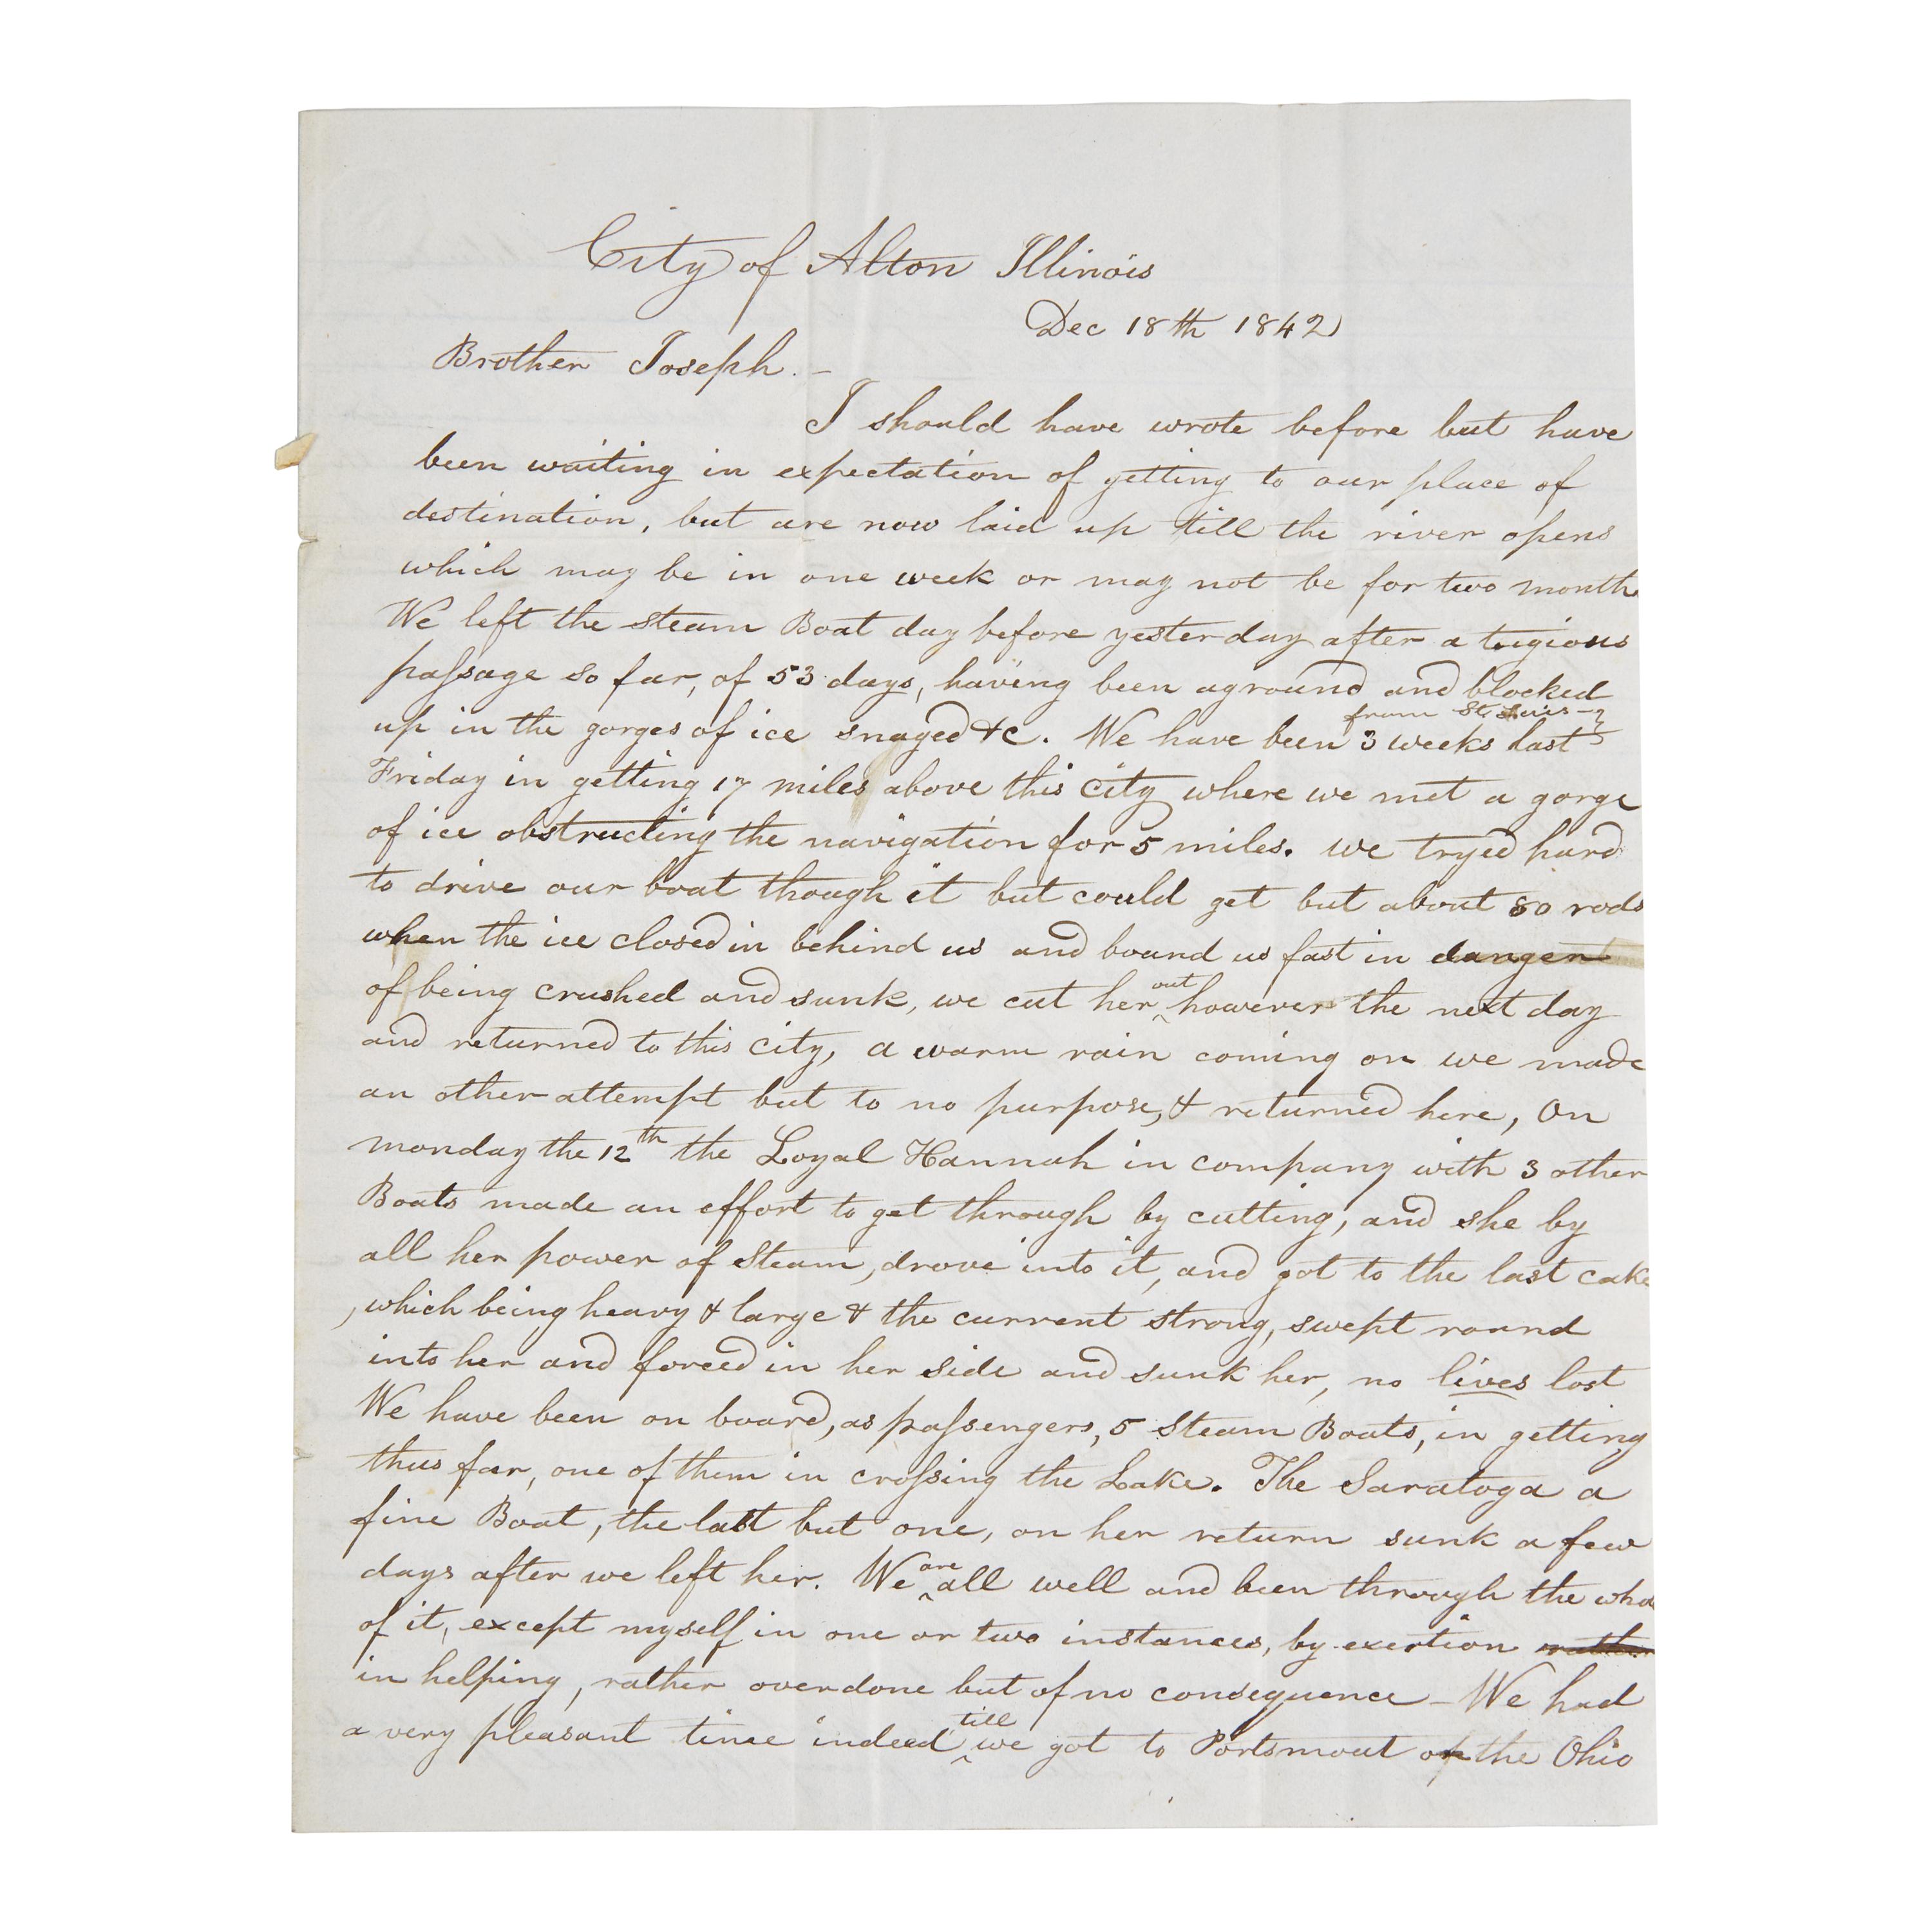 City of Alton Illinois
Dec 18th 1842
Brother Joseph. –
I should have wrote before but have
been waiting in expectation of getting to our place of
destination, but are now laid up till the river opens
which may be in one week or may not be for two month
We left the steam Boat day before yesterday after a tegious
passage so far, of 53 days, having been aground and blocked
from St Louis
up in the gorges of ice snaged &c. We have been 3 weeks last
Friday in getting 17 miles above this City where we met a gorge
of ice obstructing the navigation for 5 miles. we tryed hard
to drive our boat though it but could get but about 80 rods
when the ice closed in behind us and bound us fast in danger
of being crushed and sunk, we cut her out however the next day
and returned to this City, a warm rain coming on we made
an other attempt but to no purpose, & returned here, On
monday the 12th the Loyal Hannah in company with 3 other
Boats made an effort to get through by cutting, and she by
all her power of Steam, drove into it, and got to the last cake
, which being heavy & large & the current strong, swept round
into her and forced in her side and sunk her, no lives lost
We have been on board, as passengers, 5 Steam Boats, in getting
thus far, one of them in crossing the Lake. The Saratoga a
fine Boat, the last but one, on her return sunk a few
days after we left her. We are all well and been through the who
of it, except myself in one or two instances, by exertion
in helping, rather overdone but of no consequence – We had
a very pleasant time indeed till we got to Portsmout on the Ohio